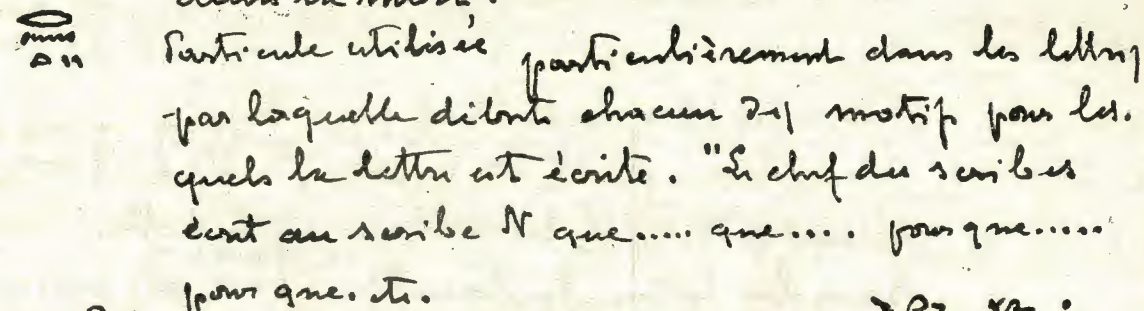 dans la
Particule utilisée particulièrement dans les lettres
par laquelle débute chacun des motifs pour les-
quels la lettre est écrite. "Le chef des scribes
écrit au scribe N que..... que.... pour que.....
pour que. etc.